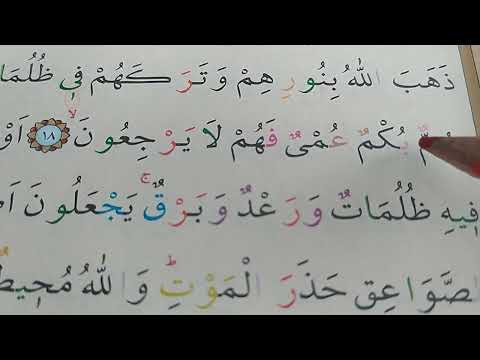 ذَهَبَ اللّٰهُ بِنُورِهِمْ وَتَرَكَهُمْ فِي ظُلُمَا
بُكْمٌ عُمْيٌ فَهُمْ لَا يَرْجِعُونَ ۙ ١٨ اَوْ
فِيهِ ظُلُمَاتٌ وَرَعْدٌ وَبَرْقٌ ۚ يَجْعَلُونَ اَ
الصَّوَاعِقِ حَذَرَ الْمَوْتِ ۜ وَاللّٰهُ مُحِيطٌ